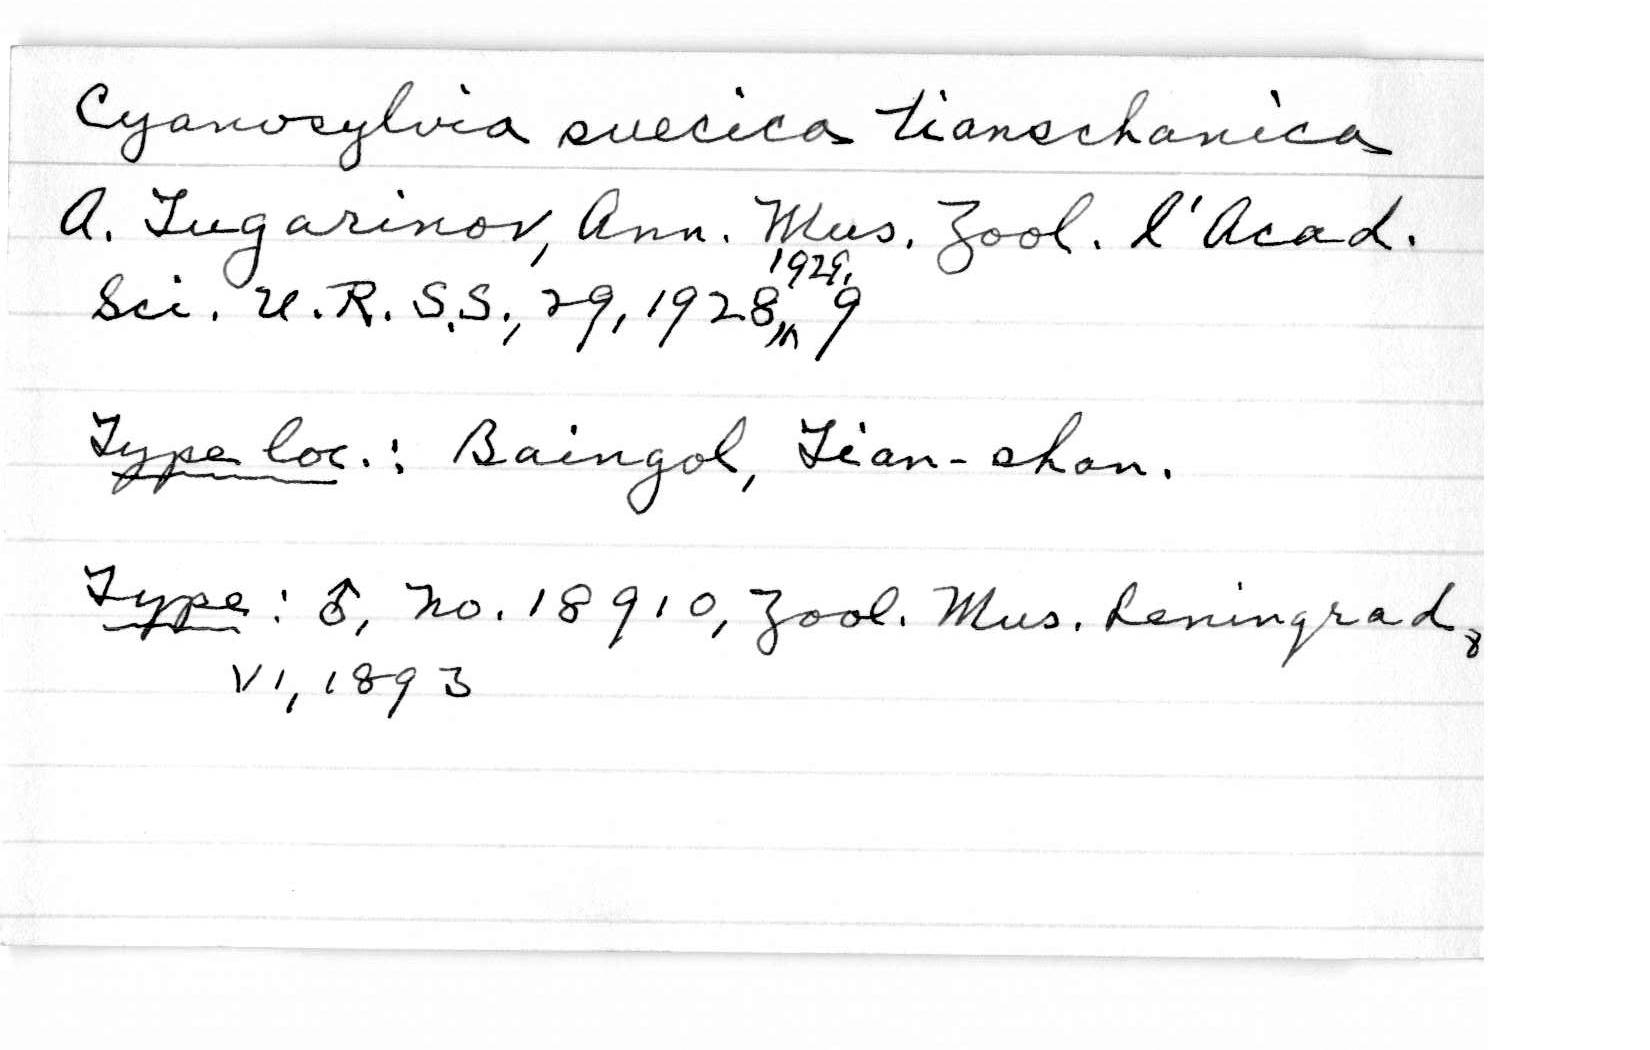 Cyanosylvia suecica tianschanica
A. Tugarinov, Ann. Mus. Zool. l'Acad.
Sci. U.R.S.S., 29, 1928, 1929, 9
Type loc.: Baingol, Tian-shan.
Type: ♂, No. 18910, Zool. Mus. Leningrad, 8
VI, 1893